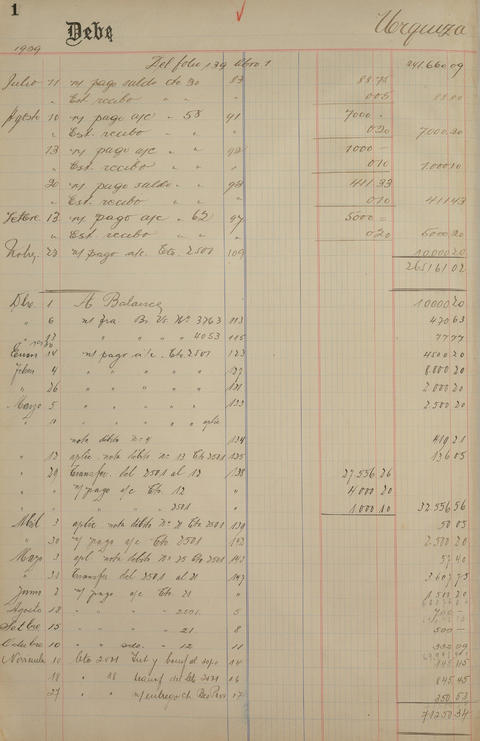 1
Debe
Urquiza
1909
Del folio 139 libro 1 241.660 09
Julio 11 n/ pago saldo cto 30 83 88.75
" " Est. recibo " " 0.05 88.80
Agosto 10 n/ pago a/c " 58 91 7000 -
" Est. recibo " " 0.20 7000.20
13 n/ pago a/c " " 92 1000 -
" Est. recibo " " 0.10 1000.10
20 n/ pago saldo " " 93 411.33
" Est. recibo " " 0.10 411.43
Setbre. 13 n/ pago a/c " 62 97 5000 -
" Est. recibo " " 0.20 5000.20
Nobre. 23 n/ pago a/c. Cto. 2501 109 10.000 20
265161 02
Dbre 1 A Balance 10.000 20
" 6 n/ fra. Bs. Vs. Nº 3763 113 470 63
13 " " " " 4053 115 77 77
Enero 14 n/ pago a/c. Cto 2501 123 4500 20
Febro 4 " " " " 127 8.000 20
" 26 " " " " 131 2.000 20
Marzo 5 " " " " 133 2.500 20
" " " " " " aplic
nota debito nº 9 134 410 21
" 12 aplic. nota debito nº 13 Cto 2501 135 126 05
" 29 Transfer. del 2501 al 12 138 27.556 26
" " n/ pago a/c Cto. 12 " 4000 20
" " " " 2501 " 1000 10 32.556 56
Abril 3 aplic. nota debito Nº 21 Cto 2501 139 50 05
" 30 n/ pago a/c Cto 2501 2.500 20
Mayo 3 apl. nota debito Nº 25 Cto 2501 143 57 40
" 31 Transfer del 2501 al 21 147 3607 75
Junio 2 n/ pago a/c Cto. 21 " 1.500 20
Agosto 18 " " " 2501. 5 700 -
Setbre 15 " " " 21 8 500 -
Octubre 10 " " sdo. " 12 11
Noviembre 10 Cto 2021 14
18 " 18 transf. del Cto. 2021 16 845 45
" 27 " " n/ entrega ch. 17 250 53
71250 34